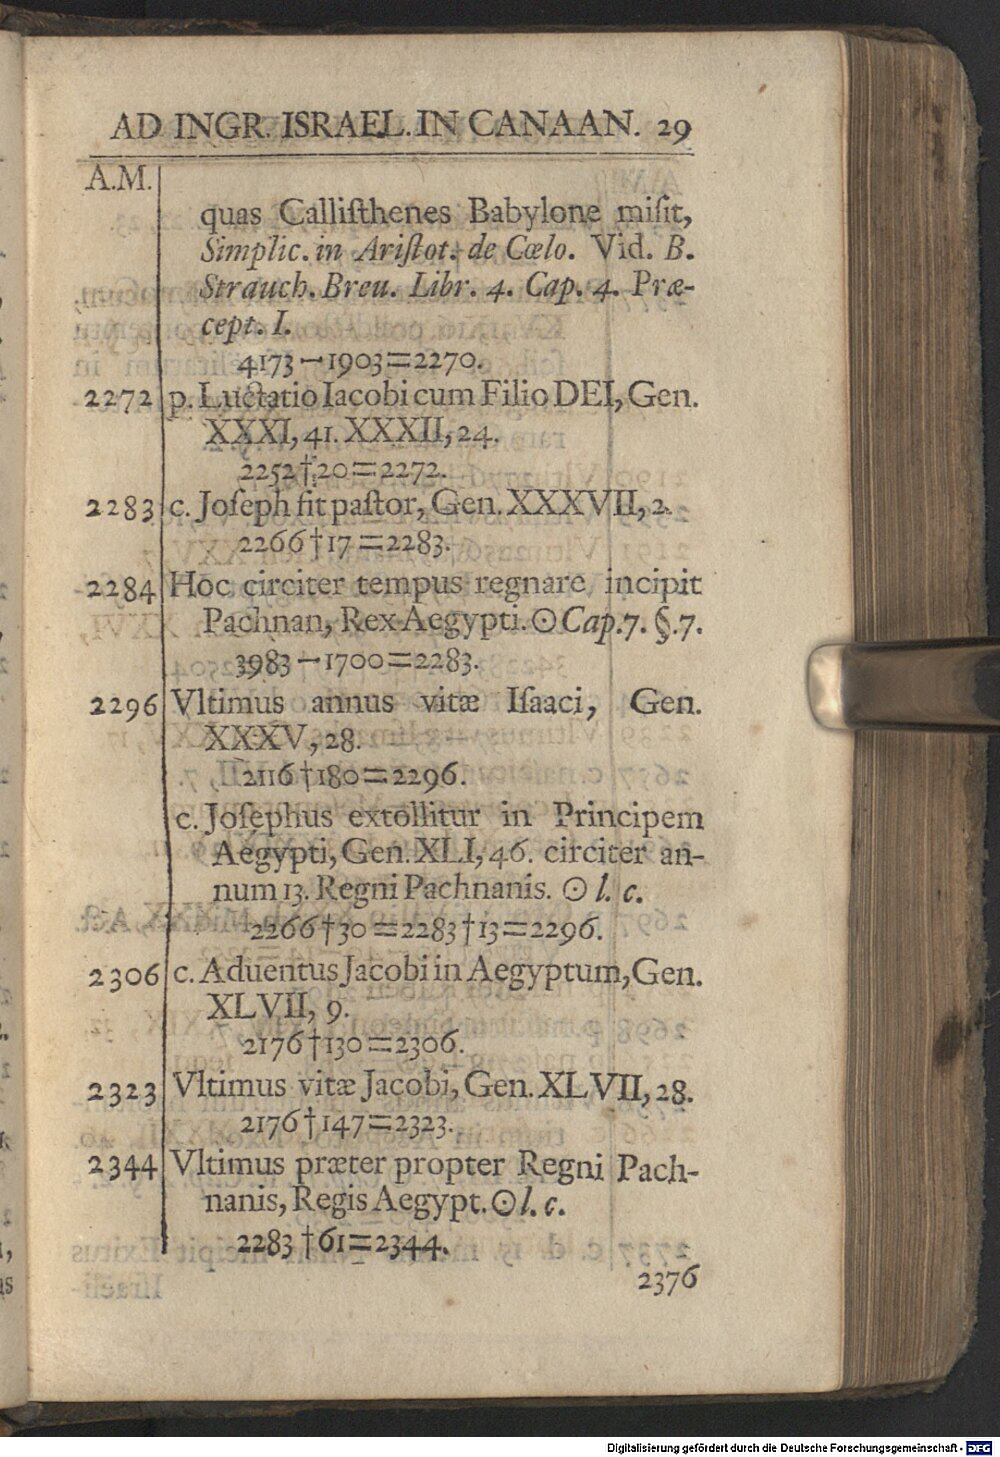 AD INGR. ISRAEL. IN CANAAN. 29
A.M.
quas Calliſthenes Babylone miſit,
Simplic. in Ariſtot. de Cœlo. Vid. B.
Strauch. Breu. Libr. 4. Cap. 4. Præ-
cept. I.
4173 — 1903 = 2270.
2272 p. Luctatio Iacobi cum Filio DEI, Gen.
XXXI, 41. XXXII, 24.
2252 † 20 = 2272.
2283 c. Joſeph fit paſtor, Gen. XXXVII, 2.
2266 † 17 = 2283.
2284 Hoc circiter tempus regnare incipit
Pachnan, Rex Aegypti. ☉ Cap. 7. §. 7.
3983 — 1700 = 2283.
2296 Vltimus annus vitæ Iſaaci, Gen.
XXXV, 28.
2116 † 180 = 2296.
c. Joſephus extollitur in Principem
Aegypti, Gen. XLI, 46. circiter an-
num 13. Regni Pachnanis. ☉ l. c.
2266 † 30 = 2283 † 13 = 2296.
2306 c. Aduentus Jacobi in Aegyptum, Gen.
XLVII, 9.
2176 † 130 = 2306.
2323 Vltimus vitæ Jacobi, Gen. XLVII, 28.
2176 † 147 = 2323.
2344 Vltimus præter propter Regni Pach-
nanis, Regis Aegypt. ☉ l. c.
2283 † 61 = 2344.
2376
Digitalisierung gefördert durch die Deutsche Forschungsgemeinschaft - DFG